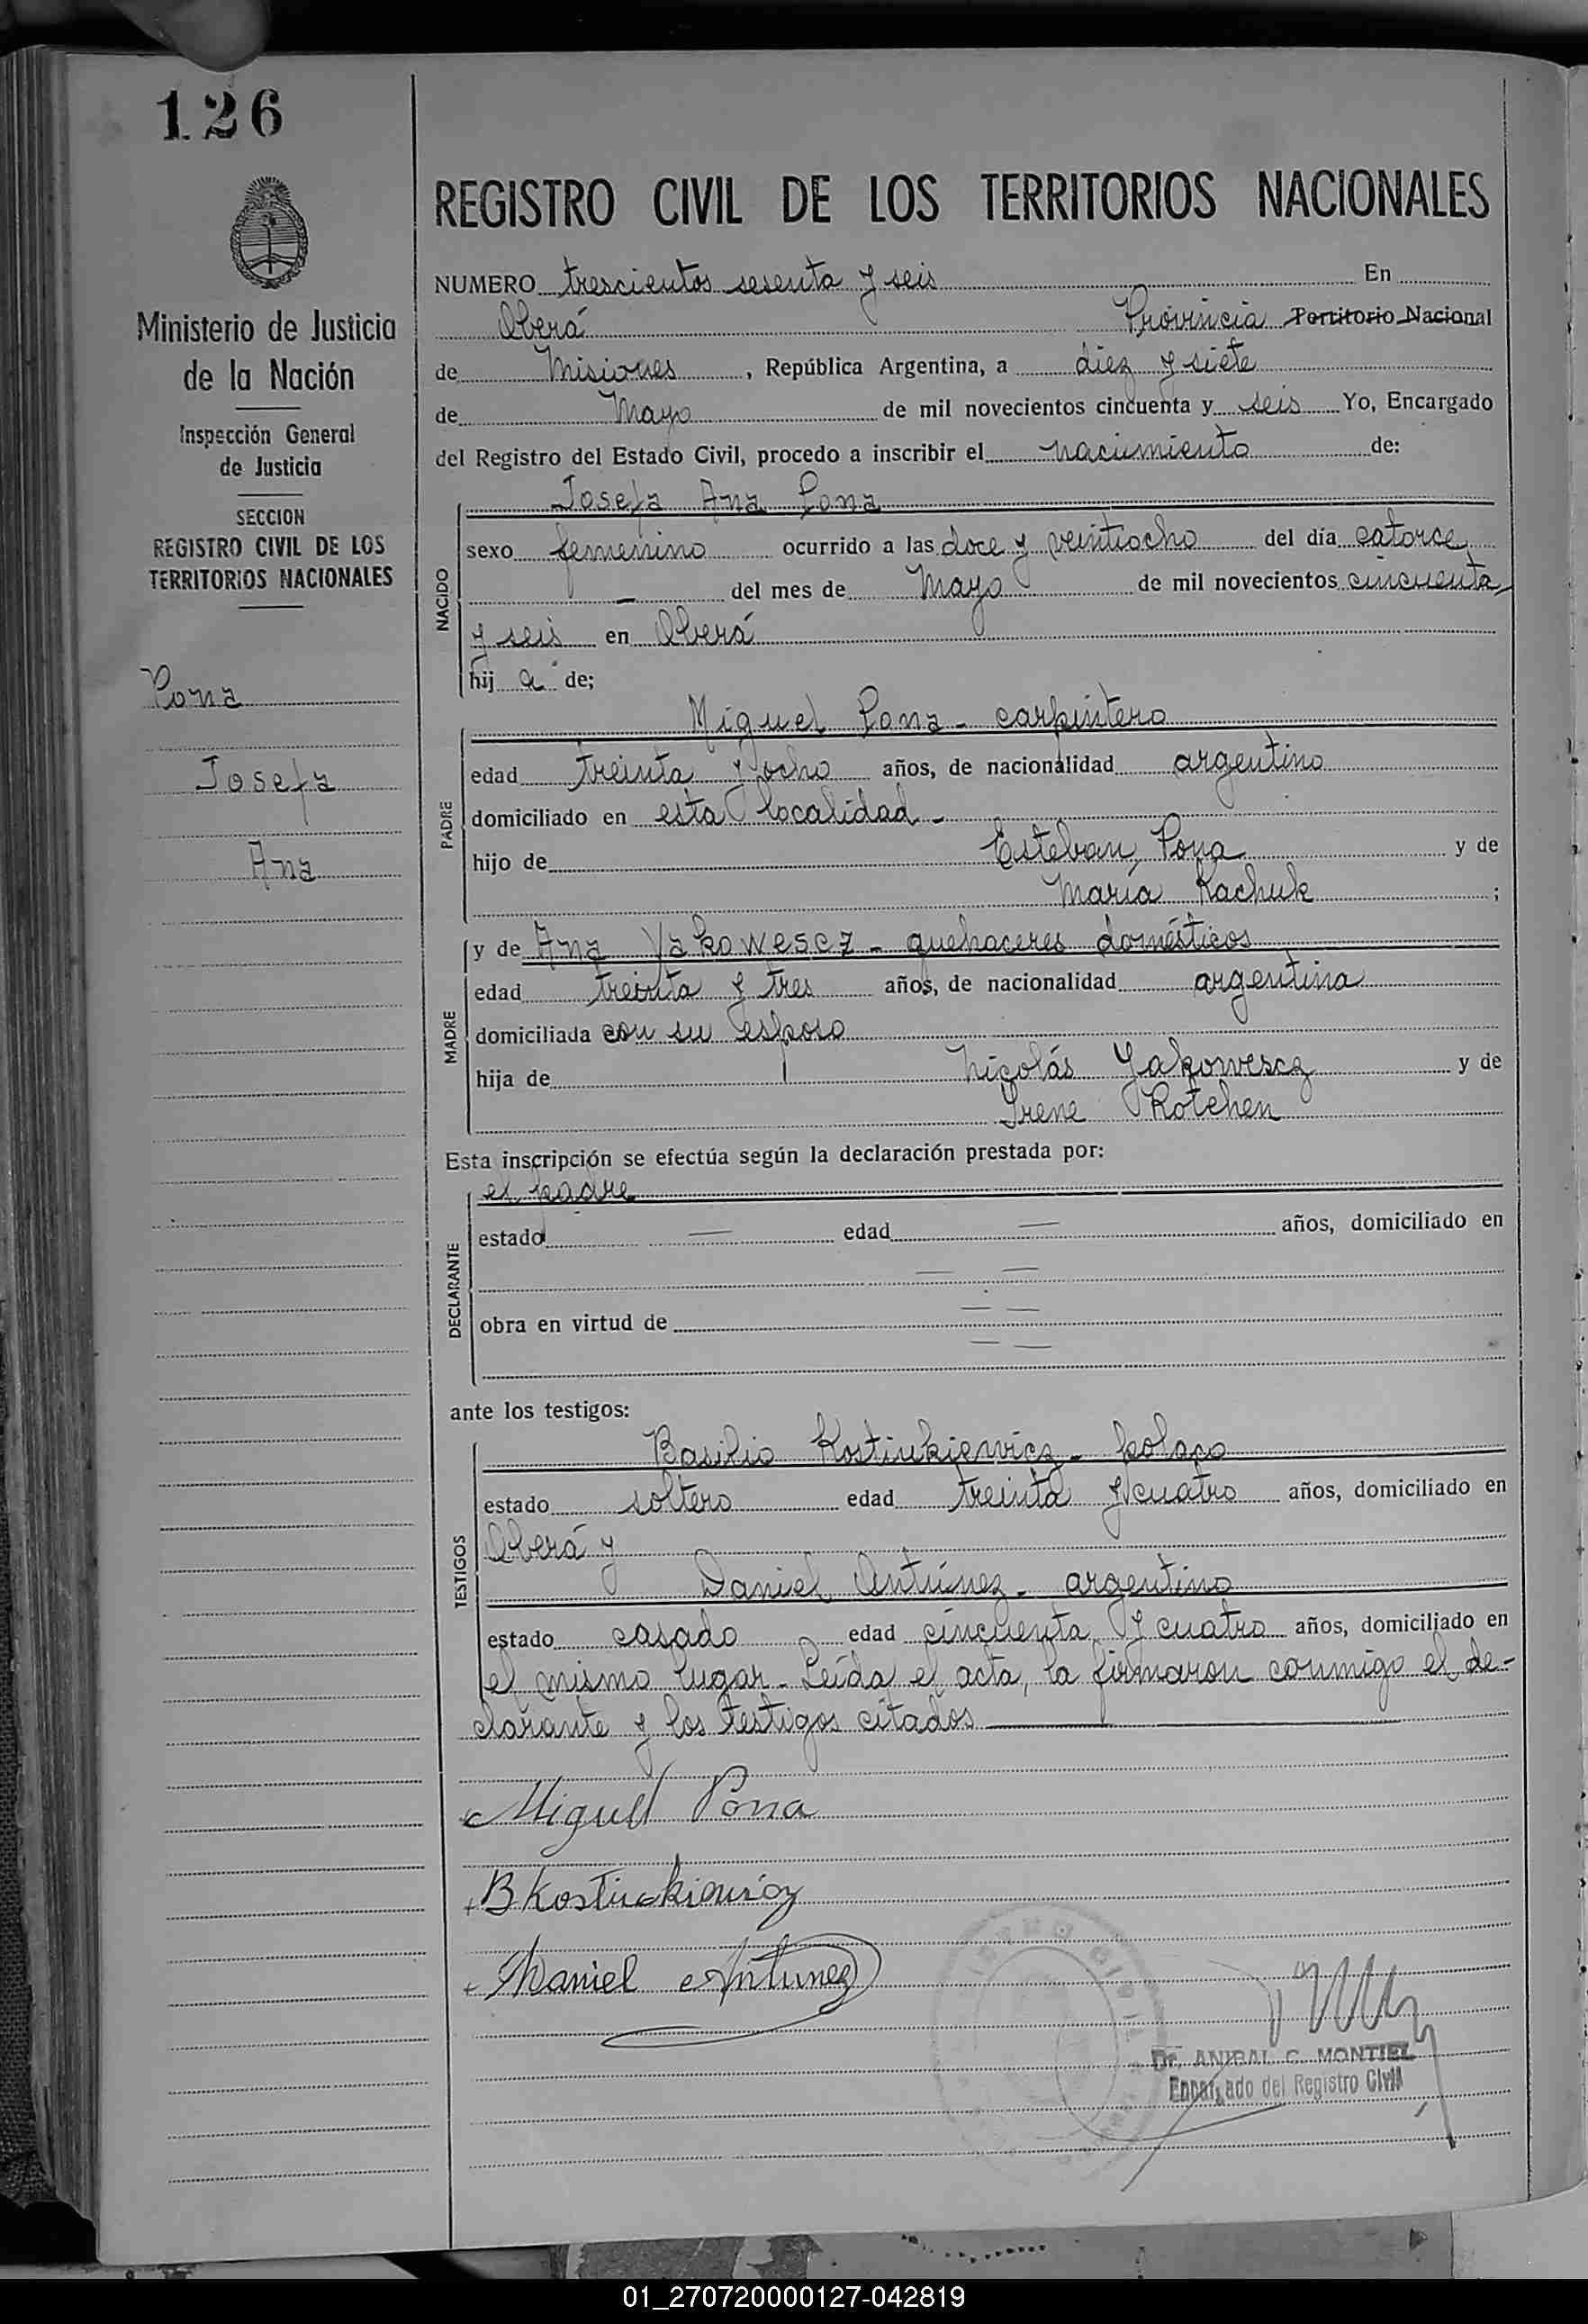 126
Ministerio de Justicia
de la Nación
Inspección General
de Justicia
SECCION
REGISTRO CIVIL DE LOS
TERRITORIOS NACIONALES
Pona
Josefa
Ana
REGISTRO CIVIL DE LOS TERRITORIOS NACIONALES
NUMERO trescientos sesenta y seis En
Oberá Provincia Territorio Nacional
de Misiones, República Argentina, a diez y siete
de Mayo de mil novecientos cincuenta y seis Yo, Encargado
del Registro del Estado Civil, procedo a inscribir el nacimiento de:
Josefa Ana Pona
NACIDO
sexo femenino ocurrido a las doce y veintiocho del día catorce
— del mes de Mayo de mil novecientos cincuenta
y seis en Oberá
hij a de;
Miguel Pona - carpintero
PADRE
edad treinta y ocho años, de nacionalidad argentino
domiciliado en esta localidad -
hijo de Esteban Pona y de
María Kachuk ;
y de Ana Yakowescz - quehaceres domésticos
MADRE
edad treinta y tres años, de nacionalidad argentina
domiciliada con su esposo
hija de Nicolás Yakowescz y de
Irene Kotchen
Esta inscripción se efectúa según la declaración prestada por:
el padre
DECLARANTE
estado — edad — años, domiciliado en
— —
obra en virtud de — —
— —
ante los testigos:
TESTIGOS
Basilio Kostiukiewicz - polaco
estado soltero edad treinta y cuatro años, domiciliado en
Oberá y
Daniel Antúnez - argentino
estado casado edad cincuenta y cuatro años, domiciliado en
el mismo lugar - Leída el acta, la firmaron conmigo el de-
clarante y los testigos citados
Miguel Pona
B Kostiukiewicz
Daniel Antunez
Dr. ANIBAL C. MONTIEL
Encargado del Registro Civil
01_270720000127-042819